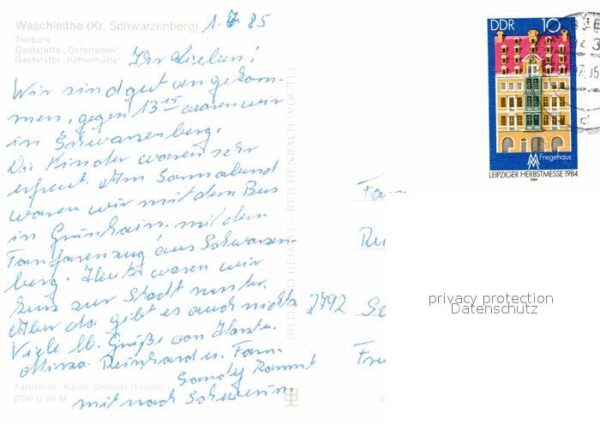 Waschleithe (Kr. Schwarzenberg)
Tierpark
Gaststätte „Osterlamm"
Gaststätte „Köhlerhütte"
1.7.85
Ihr Lieben!
Wir sind gut angekom-
men, gegen 13 15 waren wir
in Schwarzenberg.
Die Kinder waren sehr
erfreut. Am Sonnabend
waren wir mit dem Bus
in Grünhain. mit dem
Fanfarenzug aus Schwarzen-
berg. Heute waren wir
kurz zur Stadt runter.
Aber da gibt es auch nichts
Viele lb. Grüße von
Reinhard u. Fam.
Sandy kommt
mit nach Schwerin.
BILD HEIMAT REICHENBACH (VOGTL)
DDR 0,20 M
DDR 10
Fregehaus
LEIPZIGER HERBSTMESSE 1984
Fam
2792
privacy protection
Datenschutz